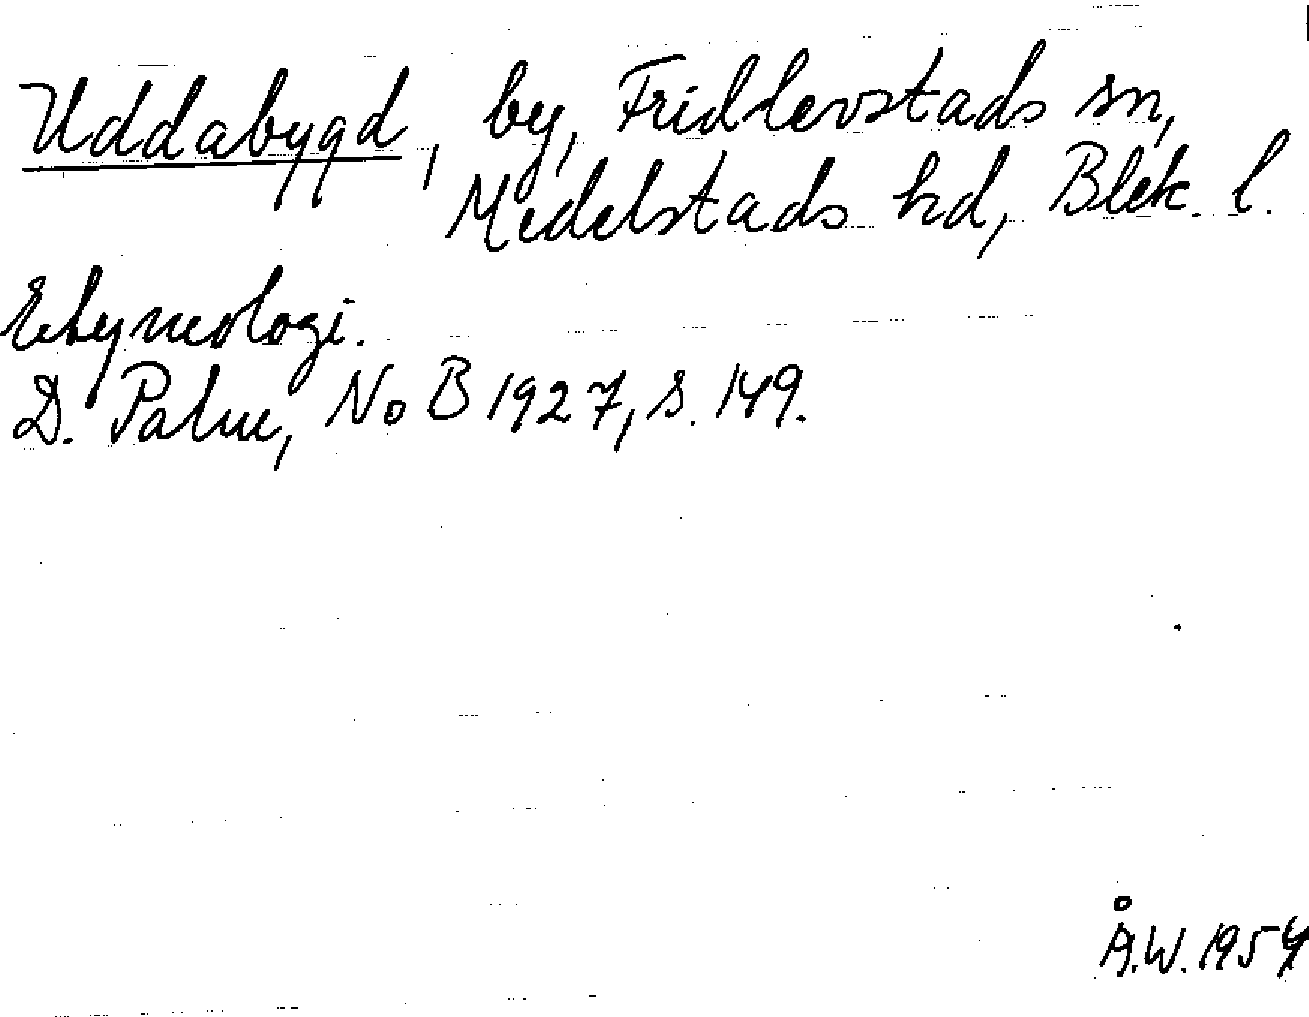 Uddabygd, by, Fridlevstads sn,
Medelstads hd, Blek. l.
Etymologi.
D. Palm, NoB 1927, s. 149.
Å.W. 1954